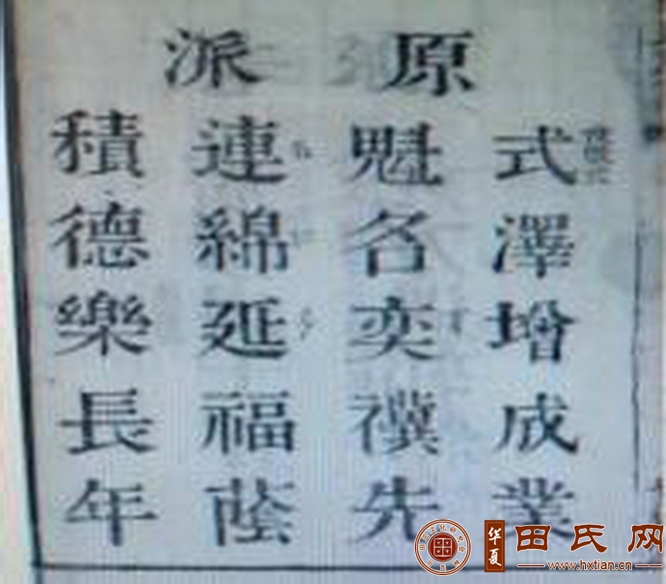 原派
式澤增成業
魁名奕禩先
連綿延福蔭
積德樂長年
华夏 田氏网
www.hxtian.cn